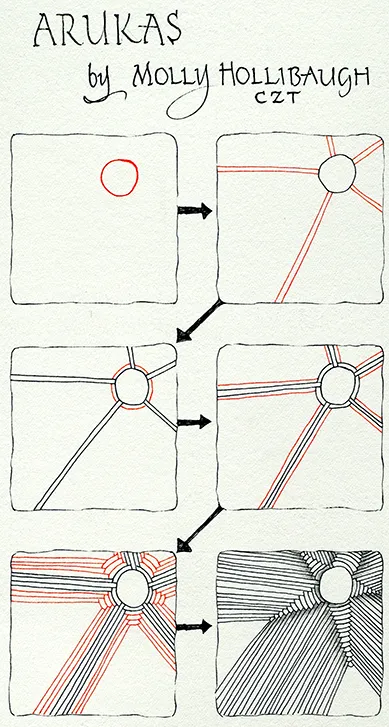 ARUKAS
by MOLLY HOLLIBAUGH
CZT